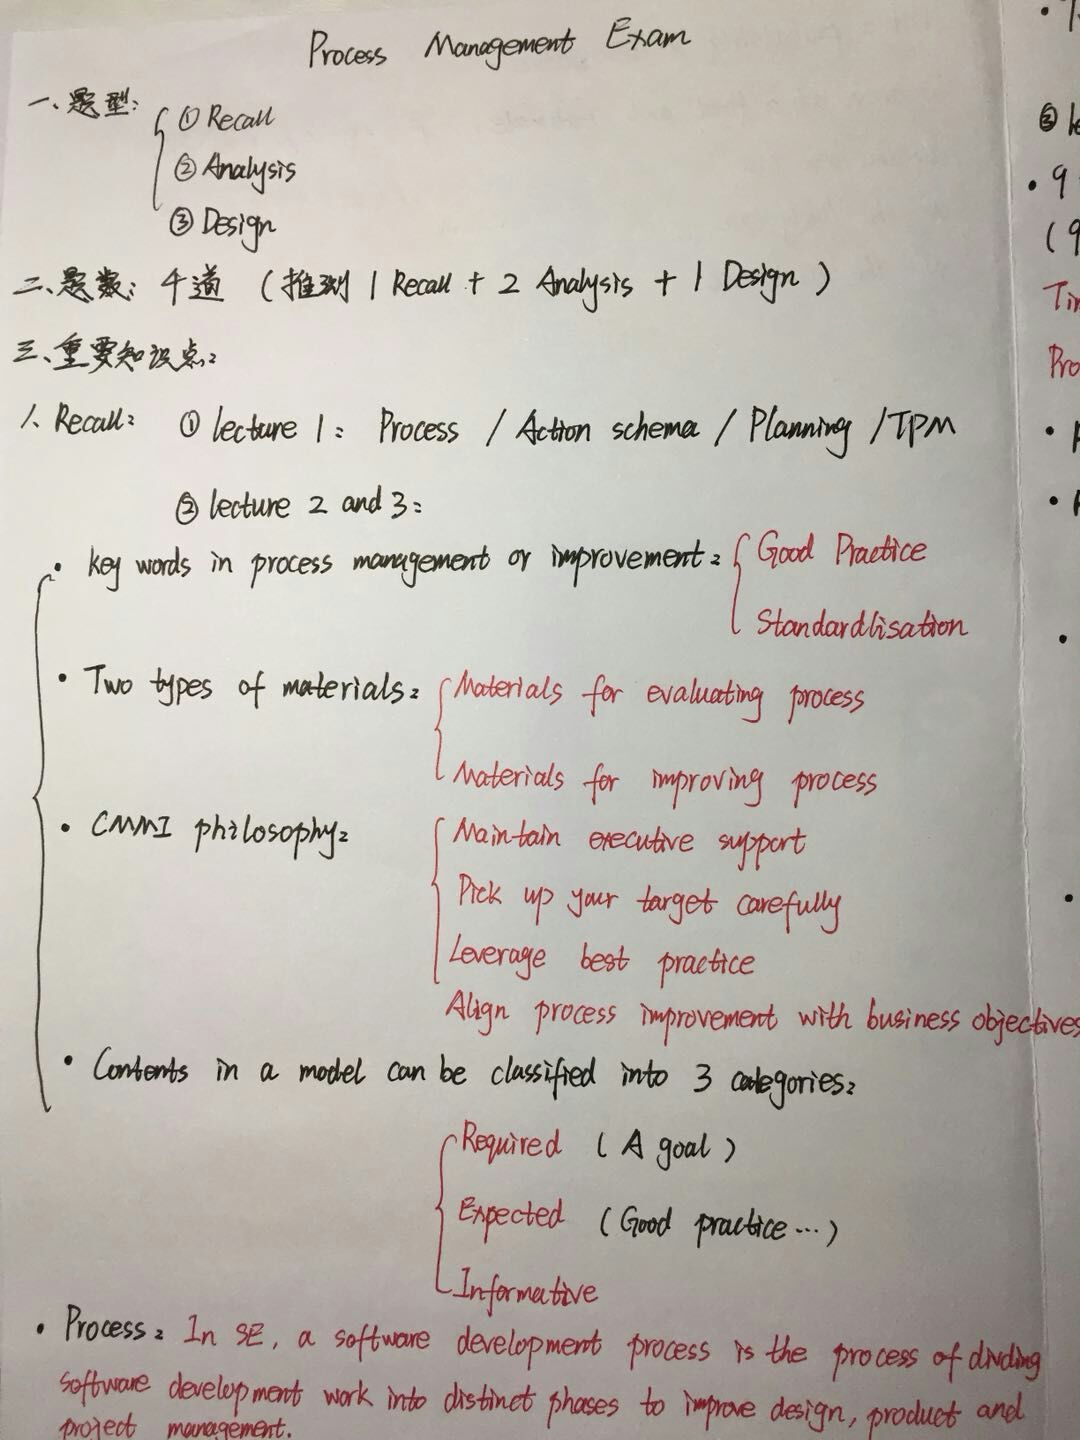 Process Management Exam
一、题型:
① Recall
② Analysis
③ Design
二、题数: 4道 (推测 1 Recall + 2 Analysis + 1 Design)
三、重要知识点:
1. Recall: ① lecture 1: Process / Action schema / Planning / TPM
② lecture 2 and 3:
• key words in process management or improvement: Good Practice
Standardlisation
• Two types of materials: Materials for evaluating process
Materials for improving process
• CMMI philosophy: Maintain executive support
Pick up your target carefully
Leverage best practice
Align process improvement with business objectives
• Contents in a model can be classified into 3 categories:
Required (A goal)
Expected (Good practice...)
Informative
• Process: In SE, a software development process is the process of dividing
software development work into distinct phases to improve design, product and
project management.
③
• 9
(9